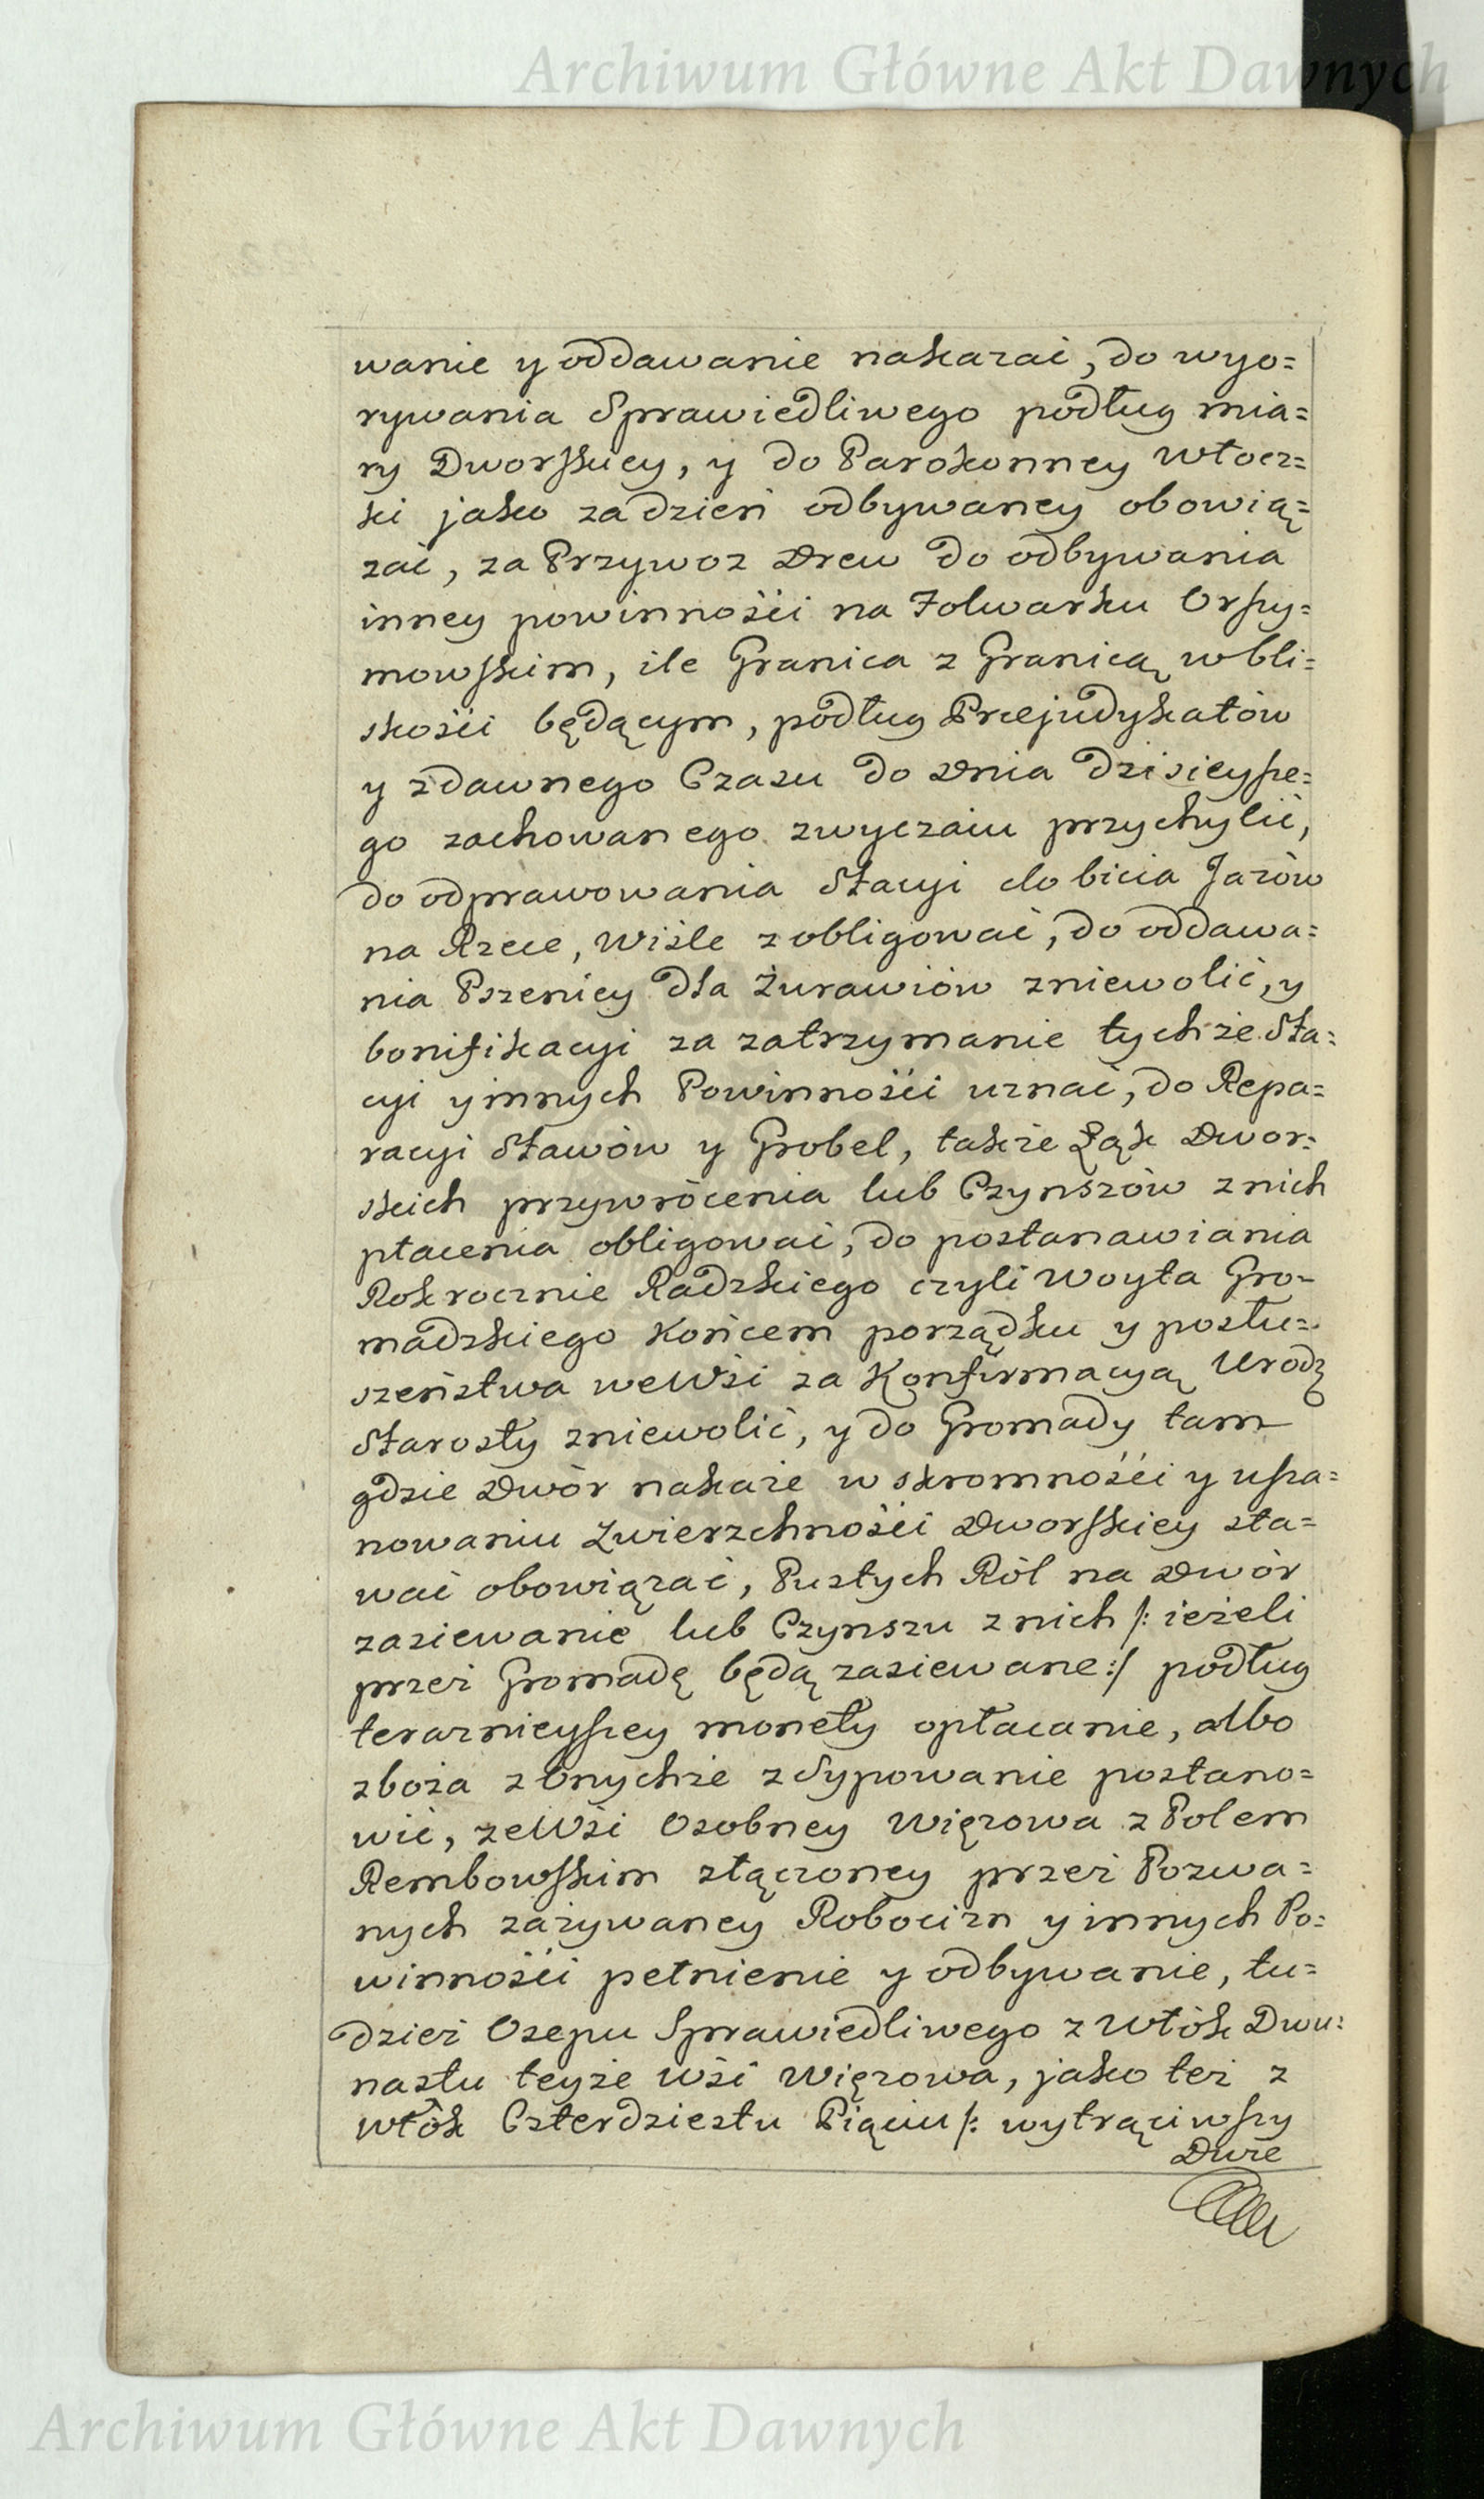 Archiwum Główne Akt Dawnych
wanie y oddawanie nakazać, do wyo=
rywania Sprawiedliwego podług mia=
ry Dworskiey, y do Parokonney włocz=
ki jako za dzień odbywaney obowią=
zać, za Przywoz Drew do odbywania
inney powinnośći na Folwarku Orszy=
mowskim, ile Granica z Granicą w bli=
skośći będącym, podług Præjudykatów
y z dawnego Czasu do Dnia dzisieysze=
go zachowanego zwyczaiu przychylić,
do odprawowania Stacyi do bicia Jazów
na Rzece, Wiśle zobligować, do oddawa=
nia Pszenicy dla Żurawiów zniewolić, y
bonifikacyi za zatrzymanie tychże Sta=
cyi y innych Powinnośći uznać, do Repa=
racyi Stawów y Grobel, także Łąk Dwor=
skich przywrócenia lub Czynszów z nich
płacenia obligować, do postanawiania
Rokrocznie Radzkiego czyli Woyta Gro=
madzkiego Końcem porządku y posłu=
szeństwa we Wśi za Konfirmacyą Urodz
Starosty zniewolić, y do Gromady tam
gdzie Dwór nakaże w skromnośći y usza=
nowaniu Zwierzchnośći Dworskiey sta=
wać obowiązać, Pustych Ról na Dwór
zasiewanie lub Czynszu z nich /: ieżeli
przez Gromadę będą zasiewane :/ podług
teraznieyszey monety opłacanie, albo
zboża z Onychże zsypowanie postano=
wić, ze Wśi Osobney Więzowa z Polem
Rembowskim złączoney przez Pozwa=
nych zażywaney Robocizn y innych Po=
winnośći pełnienie y odbywanie, tu=
dzież Osepu Sprawiedliwego z Włók Dwu=
nastu teyże Wśi Więzowa, jako też z
Włók Czterdziestu Piąciu /: wytrąciwszy
Dwie
Archiwum Główne Akt Dawnych